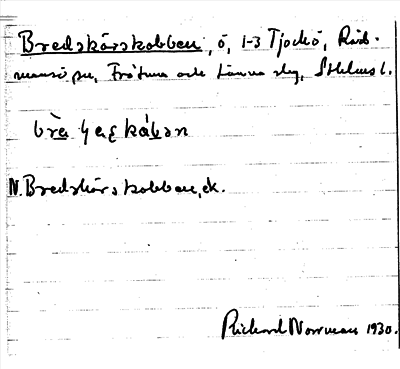 Bredskärskobben, ö, 1-3 Tjockö, Råd-
mansö sn, Frötuna och Länna skg, Sthlms l.
brɛ̀ɑʂkɑ́bən
N. Bredskärskobben, ek.
Richard Norrman 1930.